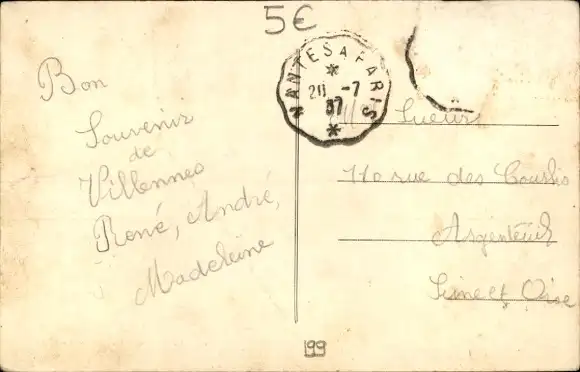 5€
NANTES A PARIS
20 -7
37
Bon
Souvenir
de
Villennes
René, André,
Madeleine
Sueur
110 rue des
Argenteuil
Seine et Oise
199